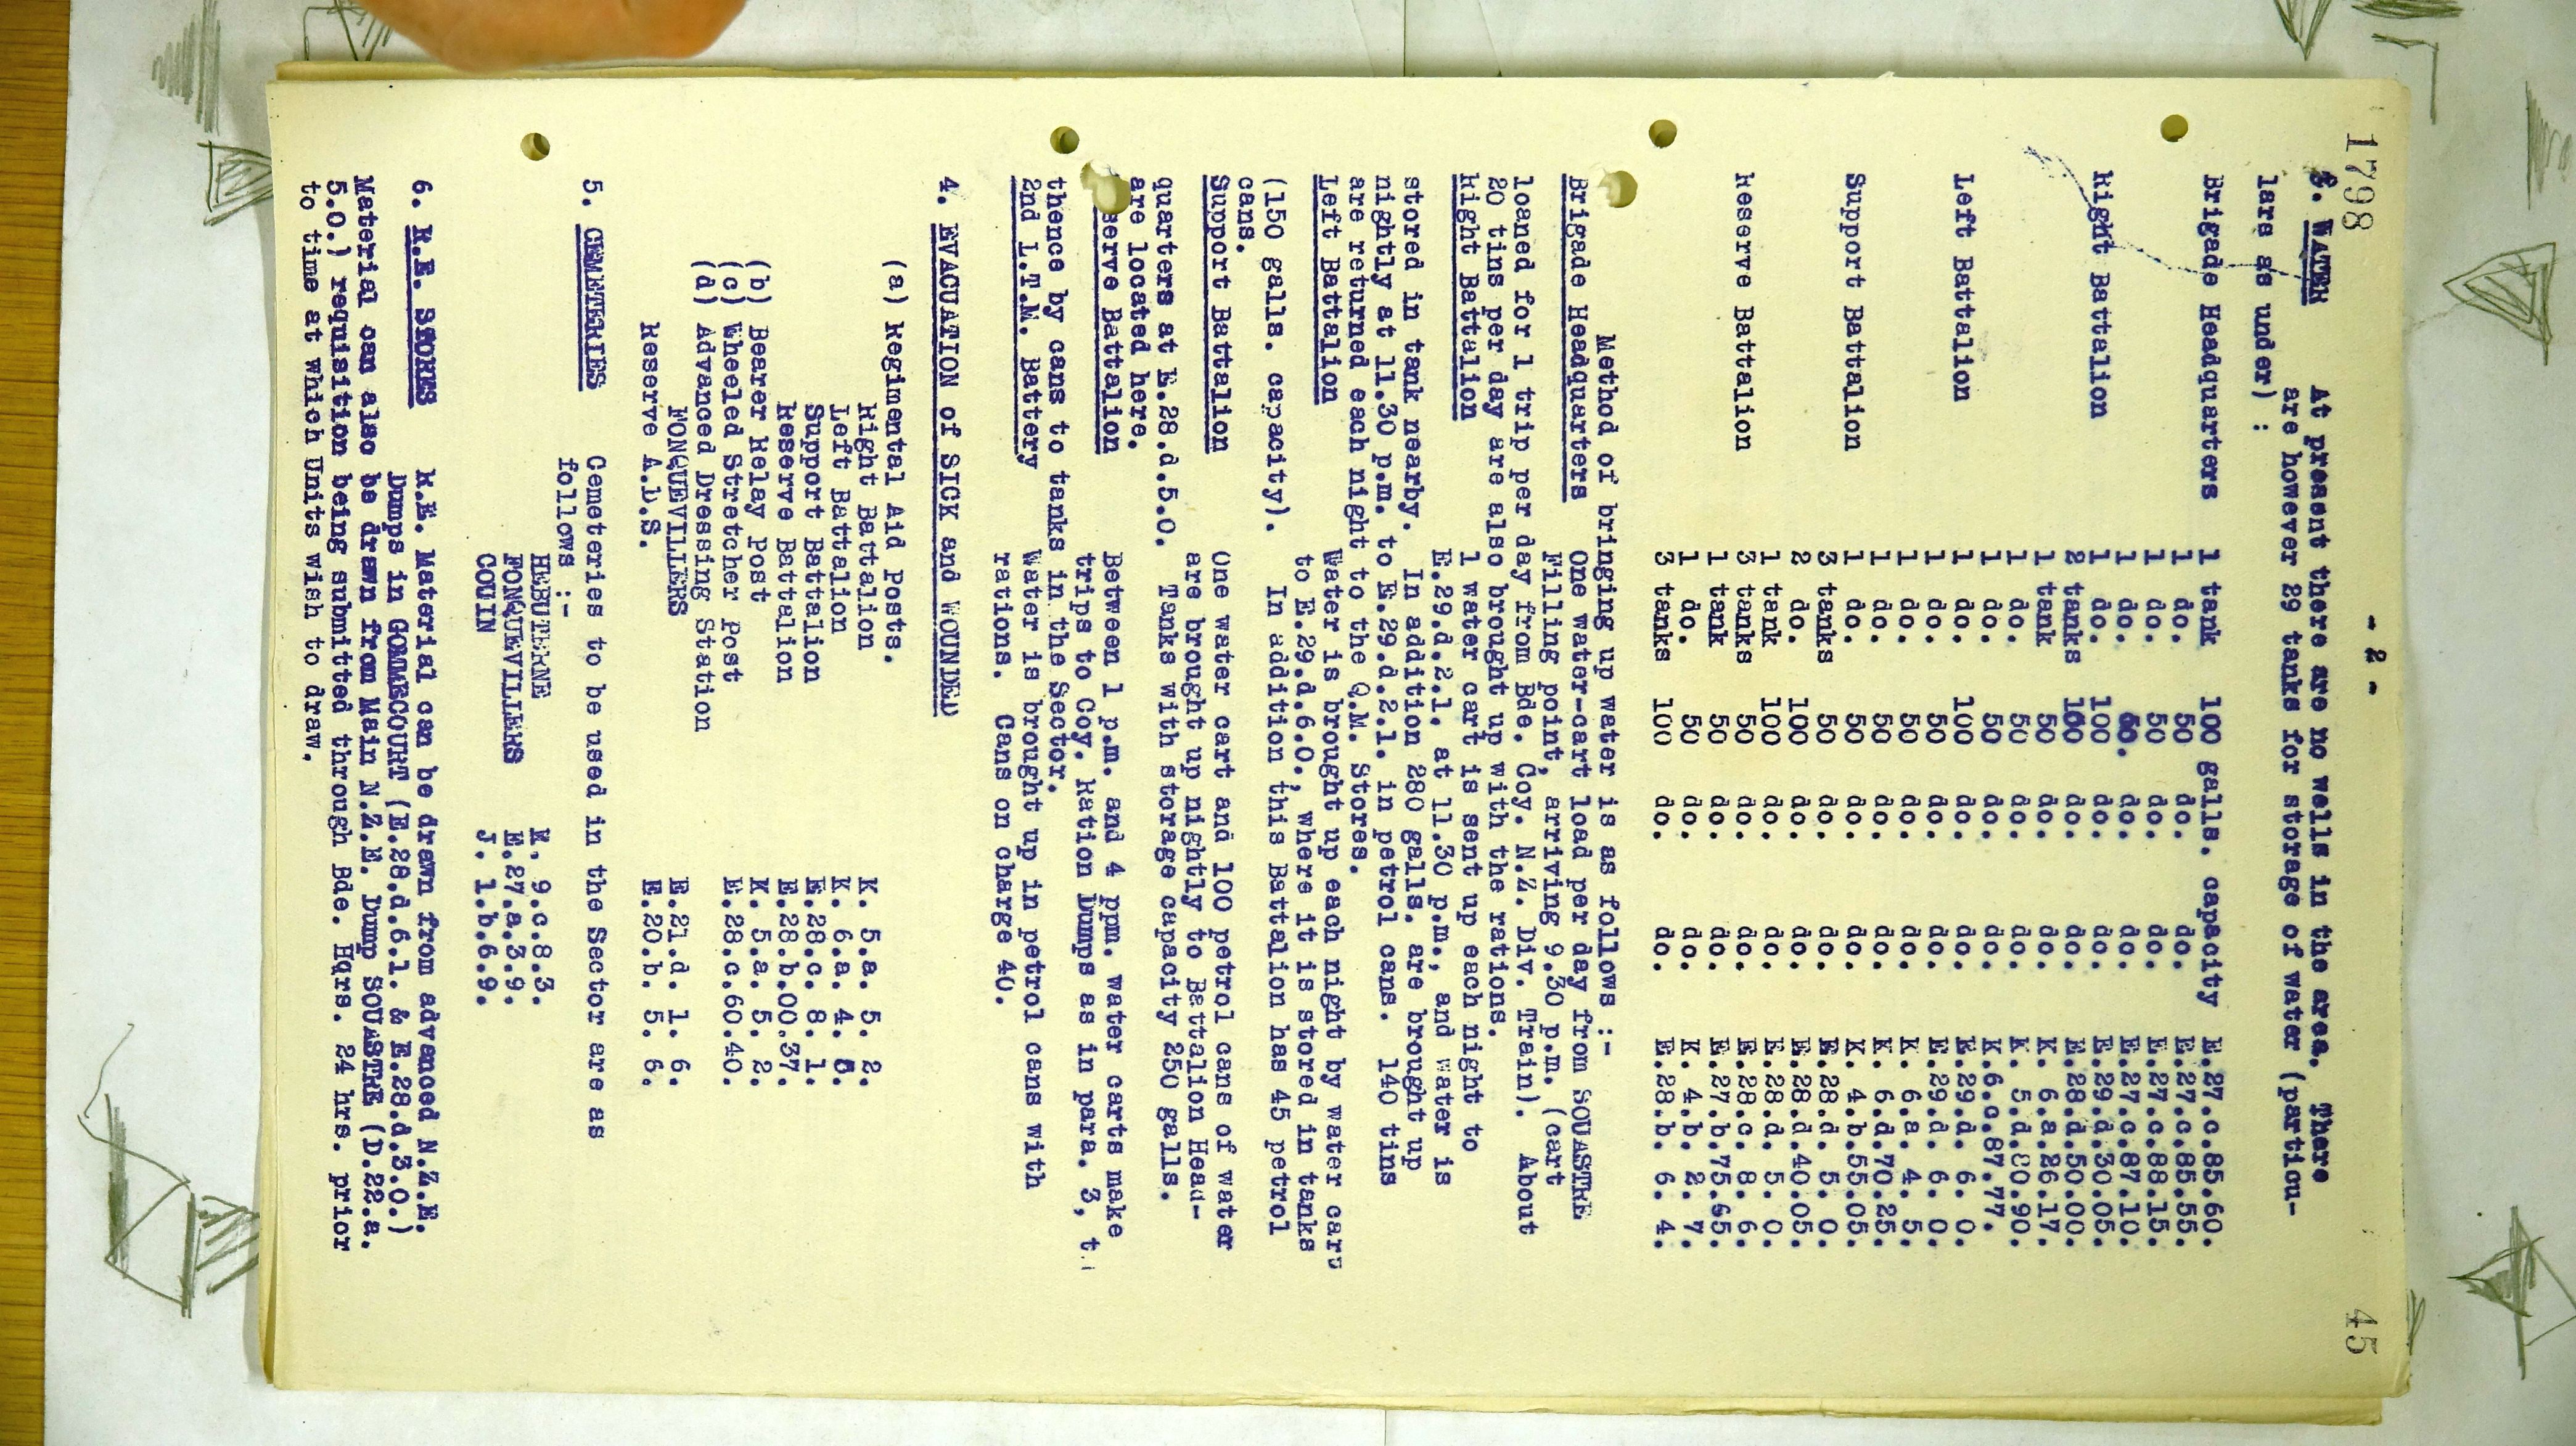 1798
45
- 2 -
3. WATER At present there are no wells in the area. There
are however 29 tanks for storage of water (particu-
lars as under) :
Brigade Headquarters 1 tank 100 galls. capacity E.27.c.85.60.
1 do. 50 do. do. E.27.c.85.55.
1 do. 50 do. do. E.27.c.88.15.
1 do. do. do. E.27.c.87.10.
Right Battalion 1 do. 100 do. do. E.29.d.30.05.
2 tanks 100 do. do. E.28.d.50.00.
1 tank 50 do. do. K. 6.a.26.17.
1 do. 50 do. do. K. 5.d.80.90.
1 do. 50 do. do. K.6.c.87.77.
Left Battalion 1 do. 100 do. do. E.29.d. 6. 0.
1 do. 50 do. do. E.29.d. 6. 0.
1 do. 50 do. do. K. 6.a. 4. 5.
1 do. 50 do. do. K. 6.d.70.25.
Support Battalion 1 do. 50 do. do. K. 4.b.55.05.
3 tanks 50 do. do. E.28.d. 5. 0.
2 do. 100 do. do. E.28.d.40.05.
1 tank 100 do. do. E.28.d. 5. 0.
Reserve Battalion 3 tanks 50 do. do. E.28.c. 8. 6.
1 tank 50 do. do. E.27.b.75.65.
1 do. 50 do. do. K. 4.b. 2. 7.
3 tanks 100 do. do. E.28.b. 6. 4.
Method of bringing up water is as follows :-
Brigade Headquarters One water-cart load per day from SOUASTRE
Filling point, arriving 9.30 p.m. (cart
loaned for 1 trip per day from Bde. Coy. N.Z. Div. Train). About
20 tins per day are also brought up with the rations.
Right Battalion 1 water cart is sent up each night to
E.29.d.2.1. at 11.30 p.m., and water is
stored in tank nearby. In addition 280 galls. are brought up
nightly at 11.30 p.m. to E.29.d.2.1. in petrol cans. 140 tins
are returned each night to the Q.M. Stores.
Left Battalion Water is brought up each night by water cart
to E.29.d.6.0., where it is stored in tanks
(150 galls. capacity). In addition this Battalion has 45 petrol
cans.
Support Battalion One water cart and 100 petrol cans of water
are brought up nightly to Battalion Head-
quarters at E.28.d.5.0. Tanks with storage capacity 250 galls.
are located here.
serve Battalion Between 1 p.m. and 4 ppm. water carts make
trips to Coy. Ration Dumps as in para. 3,
thence by cans to tanks in the Sector.
2nd L.T.M. Battery Water is brought up in petrol cans with
rations. Cans on charge 40.
4. EVACUATION of SICK and WOUNDED
(a) Regimental Aid Posts.
Right Battalion K. 5.a. 5. 2.
Left Battalion K. 6.a. 4. 5.
Support Battalion E.28.c. 8. 1.
Reserve Battalion E.28.b.00.37.
(b) Bearer Relay Post K. 5.a. 5. 2.
(c) Wheeled Stretcher Post E.28.c.60.40.
(d) Advanced Dressing Station
FONQUEVILLERS E.21.d. 1. 6.
Reserve A.D.S. E.20.b. 5. 6.
5. CEMETERIES Cemeteries to be used in the Sector are as
follows :-
HEBUTERNE K. 9.c.8.3.
FONQUEVILLERS E.27.a.3.9.
COUIN J. 1.b.6.9.
6. R.E. STORES R.E. Material can be drawn from advanced N.Z.E.
Dumps in GOMMECOURT (E.28.d.6.1. & E.28.d.3.0.)
Material can also be drawn from Main N.Z.E. Dump SOUASTRE (D.22.a.
5.0.) requisition being submitted through Bde. Hqrs. 24 hrs. prior
to time at which Units wish to draw.